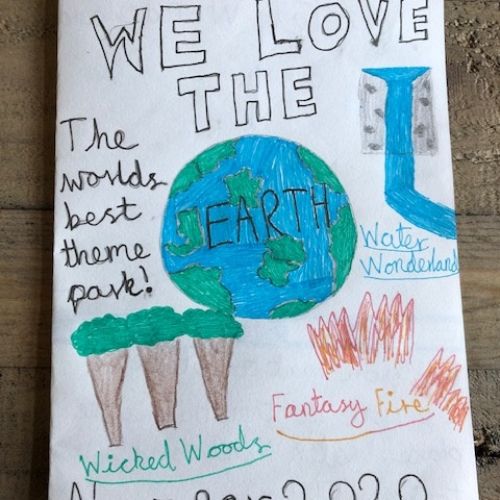 WE LOVE
THE
EARTH
The
worlds
best
theme
park!
Water
Wonderland
Fantasy Fire
Wicked Woods
2020